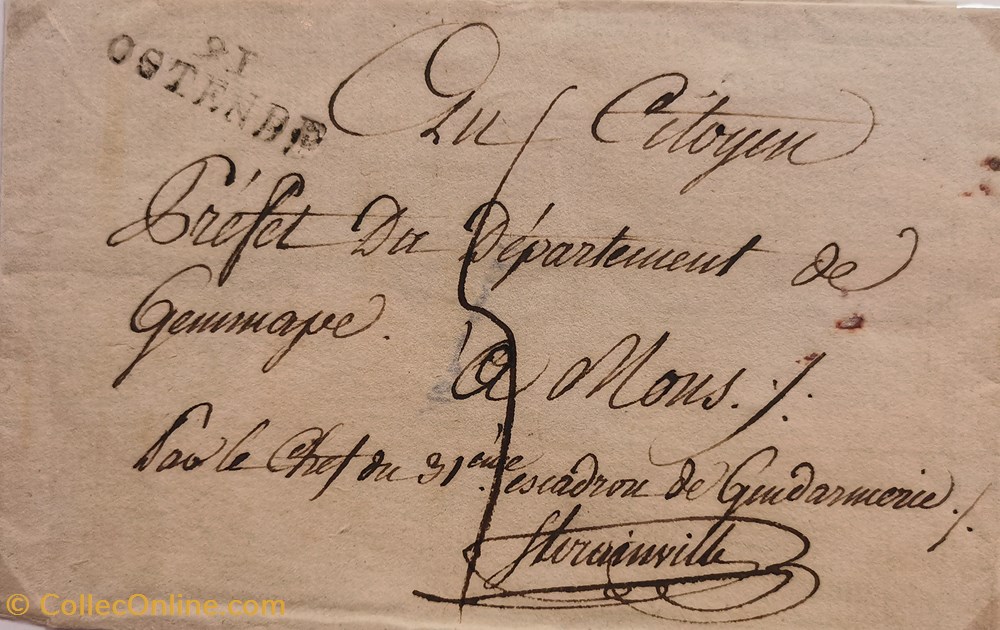 91
OSTENDE
Au Citoyen
Préfet Du Département de
Gemmape.
a Mons./.
Par le Chef du 31ème escadron de Gendarmerie./.
© CollecOnline.com